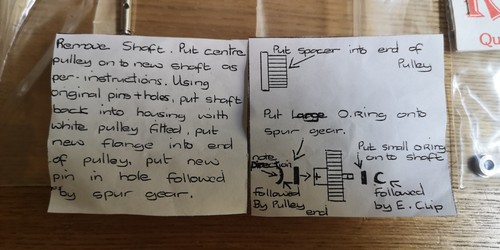 Remove Shaft. Put centre
pulley on to new shaft as
per instructions. Using
original pins + holes, put shaft
back into housing with
white pulley fitted, put
new flange into end
of pulley, put new
pin in hole followed
by spur gear.
Put spacer into end of
Pulley
Put Large O.Ring onto
spur gear.
Put small O Ring
onto shaft
note
direction
followed
By Pulley
end
followed
by E. Clip
Qu